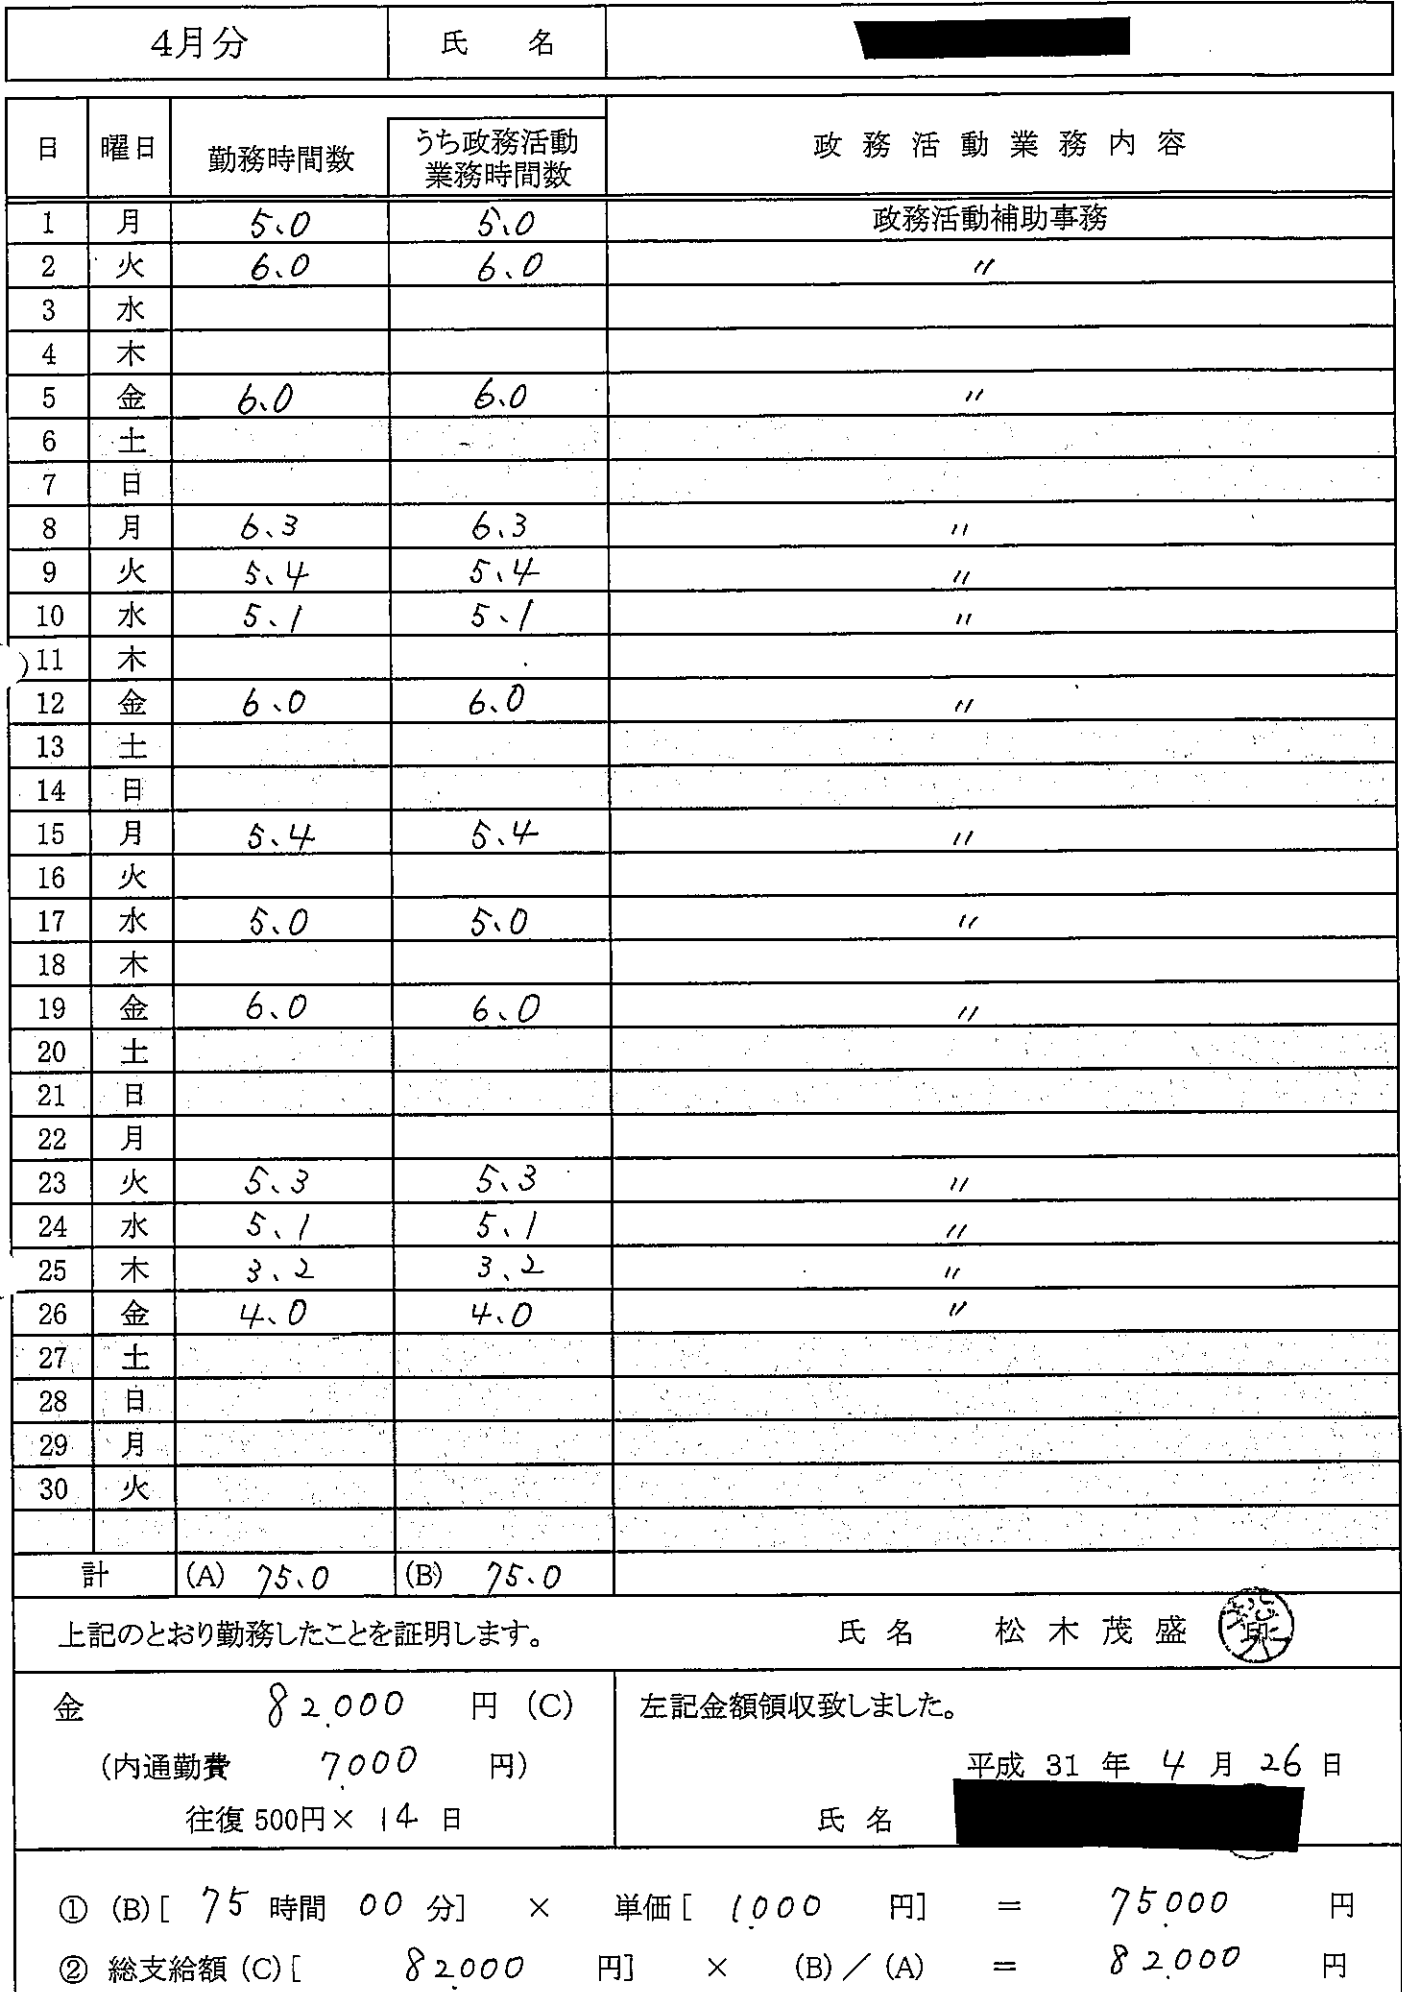 4月分 氏 名
日 曜日 勤務時間数 うち政務活動業務時間数 政務活動業務内容
1 月 5.0 5.0 政務活動補助事務
2 火 6.0 6.0 〃
3 水
4 木
5 金 6.0 6.0 〃
6 土
7 日
8 月 6.3 6.3 〃
9 火 5.4 5.4 〃
10 水 5.1 5.1 〃
11 木
12 金 6.0 6.0 〃
13 土
14 日
15 月 5.4 5.4 〃
16 火
17 水 5.0 5.0 〃
18 木
19 金 6.0 6.0 〃
20 土
21 日
22 月
23 火 5.3 5.3 〃
24 水 5.1 5.1 〃
25 木 3.2 3.2 〃
26 金 4.0 4.0 〃
27 土
28 日
29 月
30 火
計 (A) 75.0 (B) 75.0
上記のとおり勤務したことを証明します。 氏 名 松 木 茂 盛 印
金 82,000 円 (C) 左記金額領収致しました。
(内通勤費 7,000 円) 平成 31 年 4 月 26 日
往復 500円× 14 日 氏 名
① (B)[ 75 時間 00 分] × 単価[ 1,000 円] = 75,000 円
② 総支給額 (C)[ 82,000 円] × (B)／(A) = 82,000 円